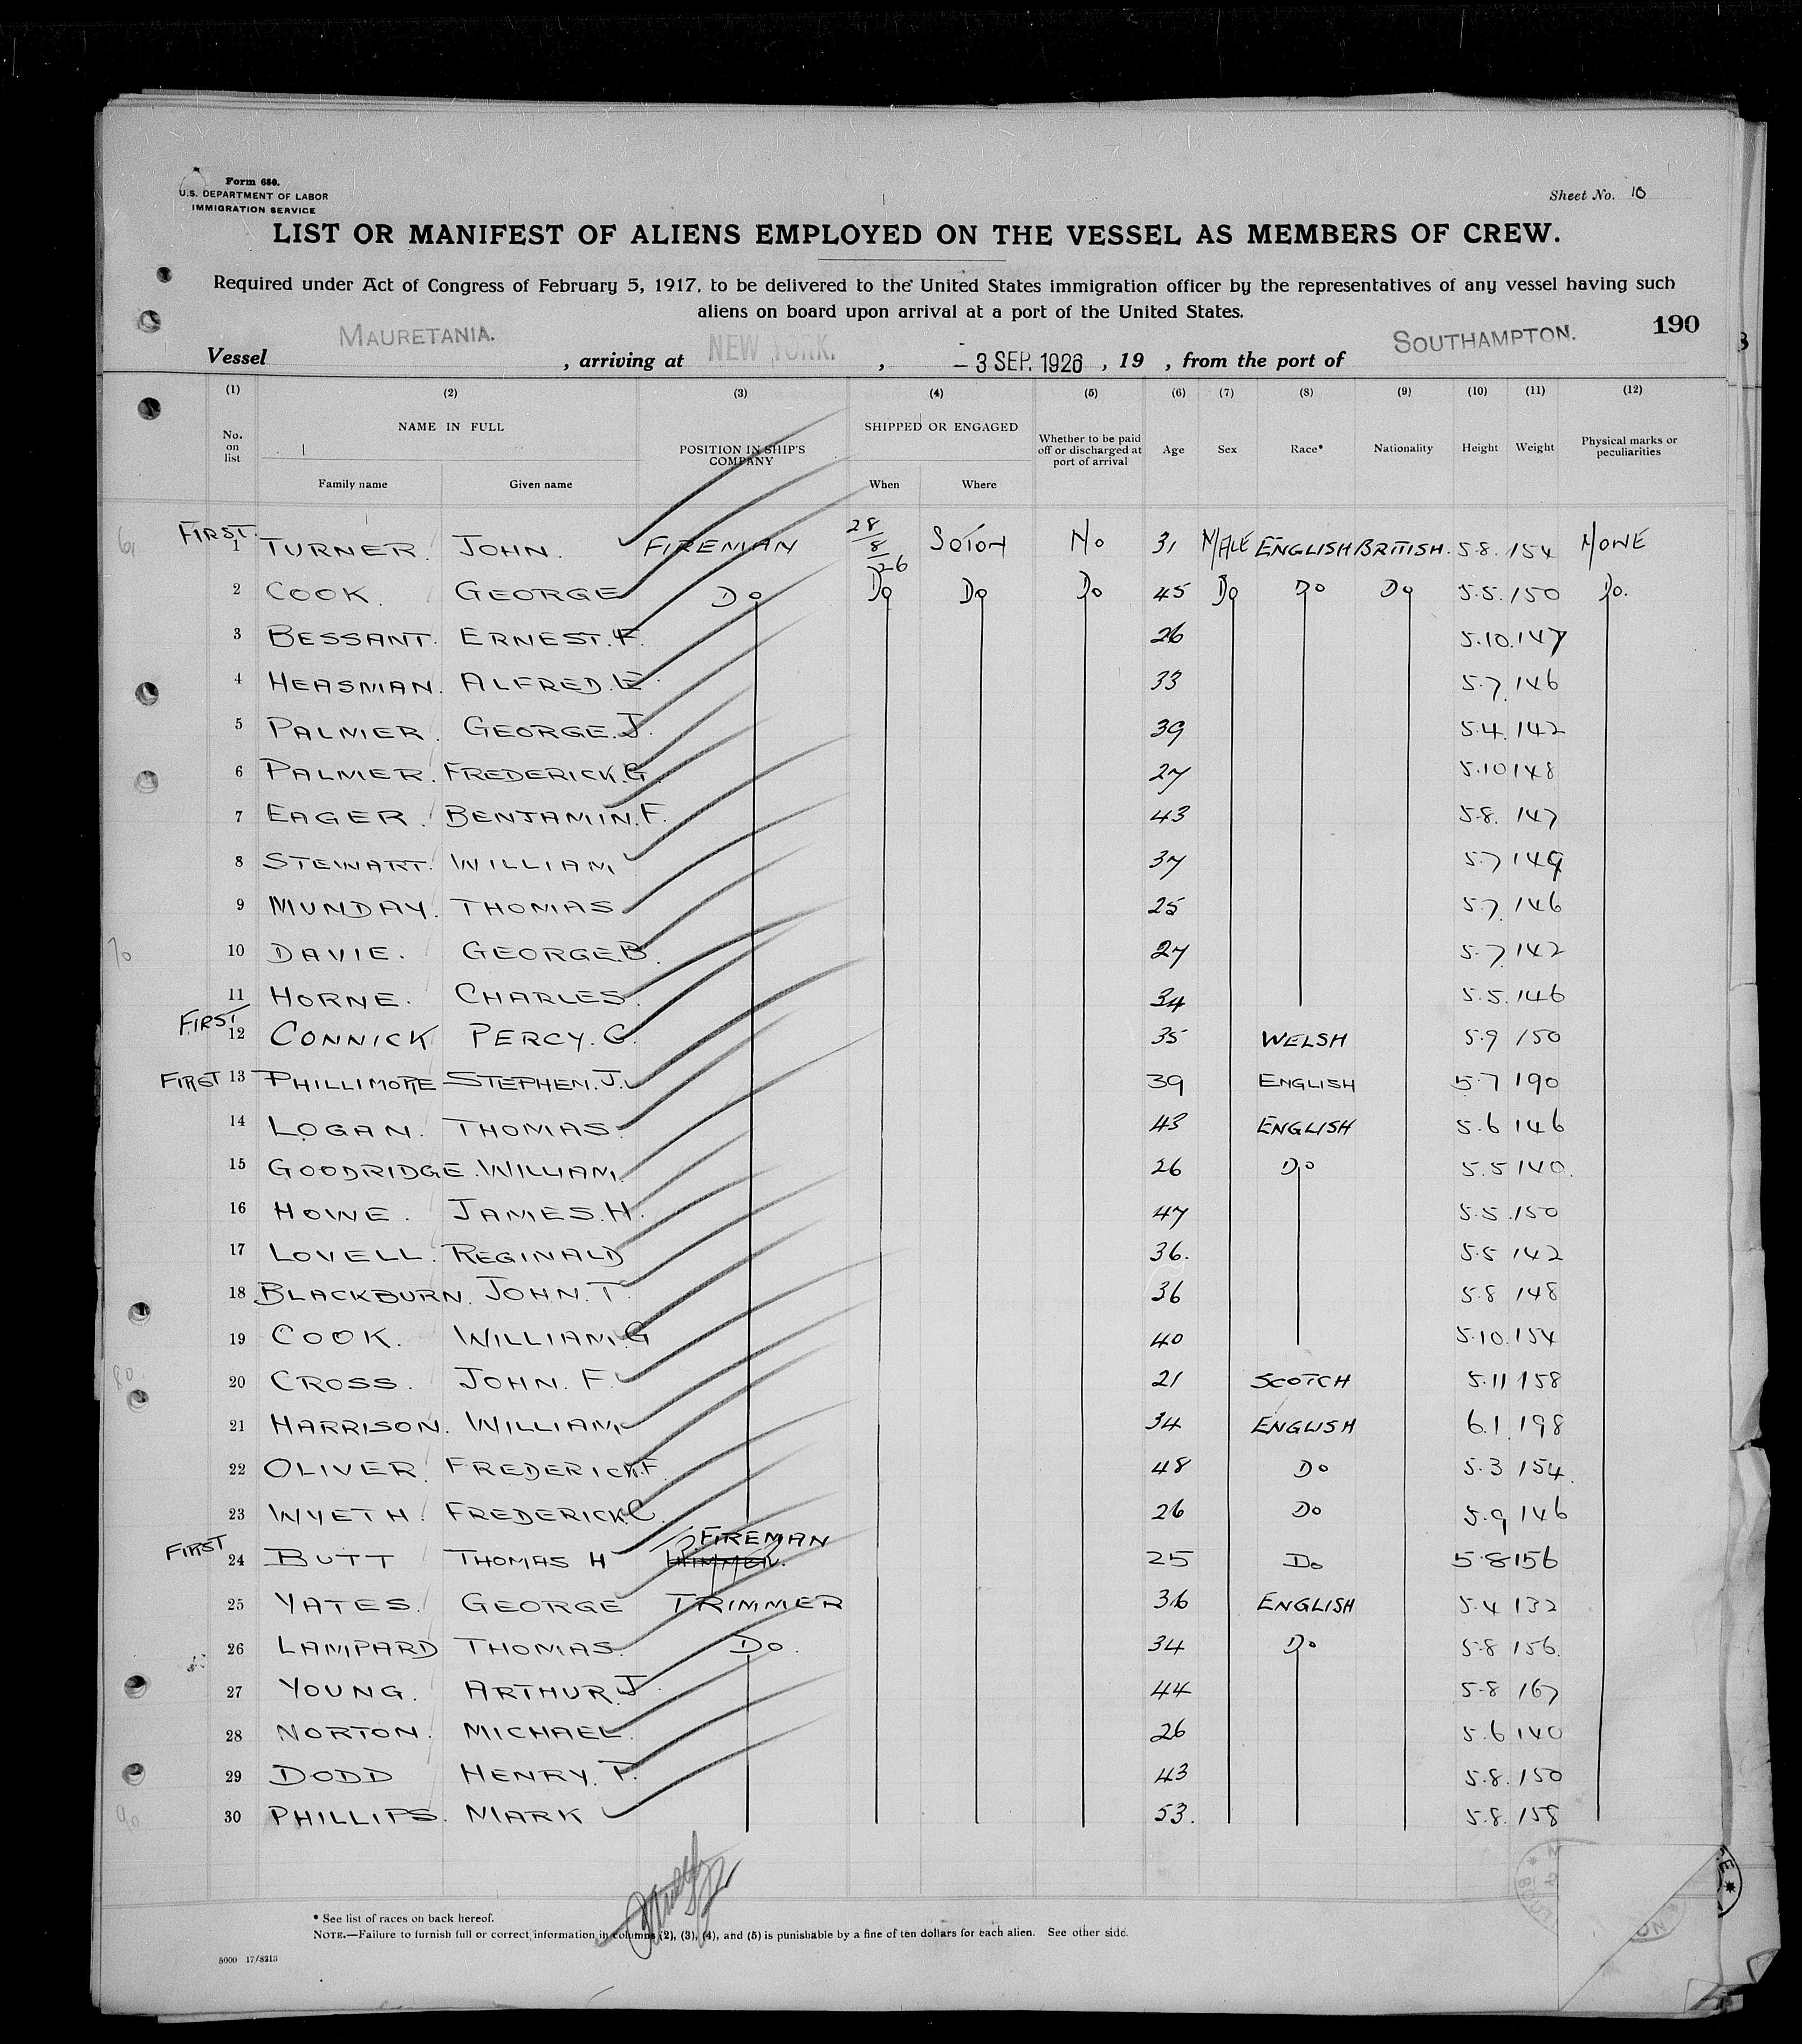 Form 680.
U.S. DEPARTMENT OF LABOR
IMMIGRATION SERVICE
Sheet No. 10
LIST OR MANIFEST OF ALIENS EMPLOYED ON THE VESSEL AS MEMBERS OF CREW.
Required under Act of Congress of February 5, 1917, to be delivered to the United States immigration officer by the representatives of any vessel having such
aliens on board upon arrival at a port of the United States.
190
Vessel MAURETANIA. , arriving at NEW YORK. , - 3 SEP. 1926 , 19 , from the port of SOUTHAMPTON.
(1) (2) (3) (4) (5) (6) (7) (8) (9) (10) (11) (12)
No. on list NAME IN FULL POSITION IN SHIP'S COMPANY SHIPPED OR ENGAGED Whether to be paid off or discharged at port of arrival Age Sex Race* Nationality Height Weight Physical marks or peculiarities
Family name Given name When Where
FIRST. 1 TURNER. JOHN. FIREMAN 28/8/26 So'ton No 31 MALE ENGLISH BRITISH. 5.8. 154 NONE
2 COOK. GEORGE Do Do Do Do 45 Do Do Do 5.5. 150 Do.
3 BESSANT. ERNEST. F. 26 5.10. 147
4 HEASMAN. ALFRED. E. 33 5.7. 146
5 PALMER. GEORGE. J. 39 5.4. 142
6 PALMER. FREDERICK. G. 27 5.10 148
7 EAGER. BENJAMIN. F. 43 5.8. 147
8 STEWART. WILLIAM 37 5.7 149
9 MUNDAY. THOMAS 25 5.7. 146
10 DAVIE. GEORGE. B. 27 5.7. 142
11 HORNE. CHARLES. 34 5.5. 146
FIRST 12 CONNICK PERCY. G. 35 WELSH 5.9 150
FIRST 13 PHILLIMORE STEPHEN. J. 39 ENGLISH 5.7 190
14 LOGAN. THOMAS. 43 ENGLISH 5.6 146
15 GOODRIDGE. WILLIAM. 26 Do 5.5 140.
16 HOWE. JAMES. H. 47 5.5. 150
17 LOVELL. REGINALD 36. 5.5 142
18 BLACKBURN. JOHN. T. 36 5.8 148
19 COOK. WILLIAM. G 40 5.10. 154
20 CROSS. JOHN. F. 21 SCOTCH 5.11 158
21 HARRISON. WILLIAM 34 ENGLISH 6.1. 198
22 OLIVER. FREDERICK. F. 48 Do 5.3 154.
23 WYETH. FREDERICK. C. 26 Do 5.9 146
FIRST 24 BUTT THOMAS H FIREMAN TRIMMER. 25 Do 5.8 156
25 YATES. GEORGE TRIMMER 36 ENGLISH 5.4 132
26 LAMPARD THOMAS. Do. 34 Do 5.8 156.
27 YOUNG. ARTHUR. J. 44 5.8 167
28 NORTON. MICHAEL. 26 5.6 140
29 DODD HENRY. P. 43 5.8. 150
30 PHILLIPS. MARK 53. 5.8. 158
* See list of races on back hereof.
NOTE.—Failure to furnish full or correct information in columns (2), (3), (4), and (5) is punishable by a fine of ten dollars for each alien. See other side.
5000 17/8213